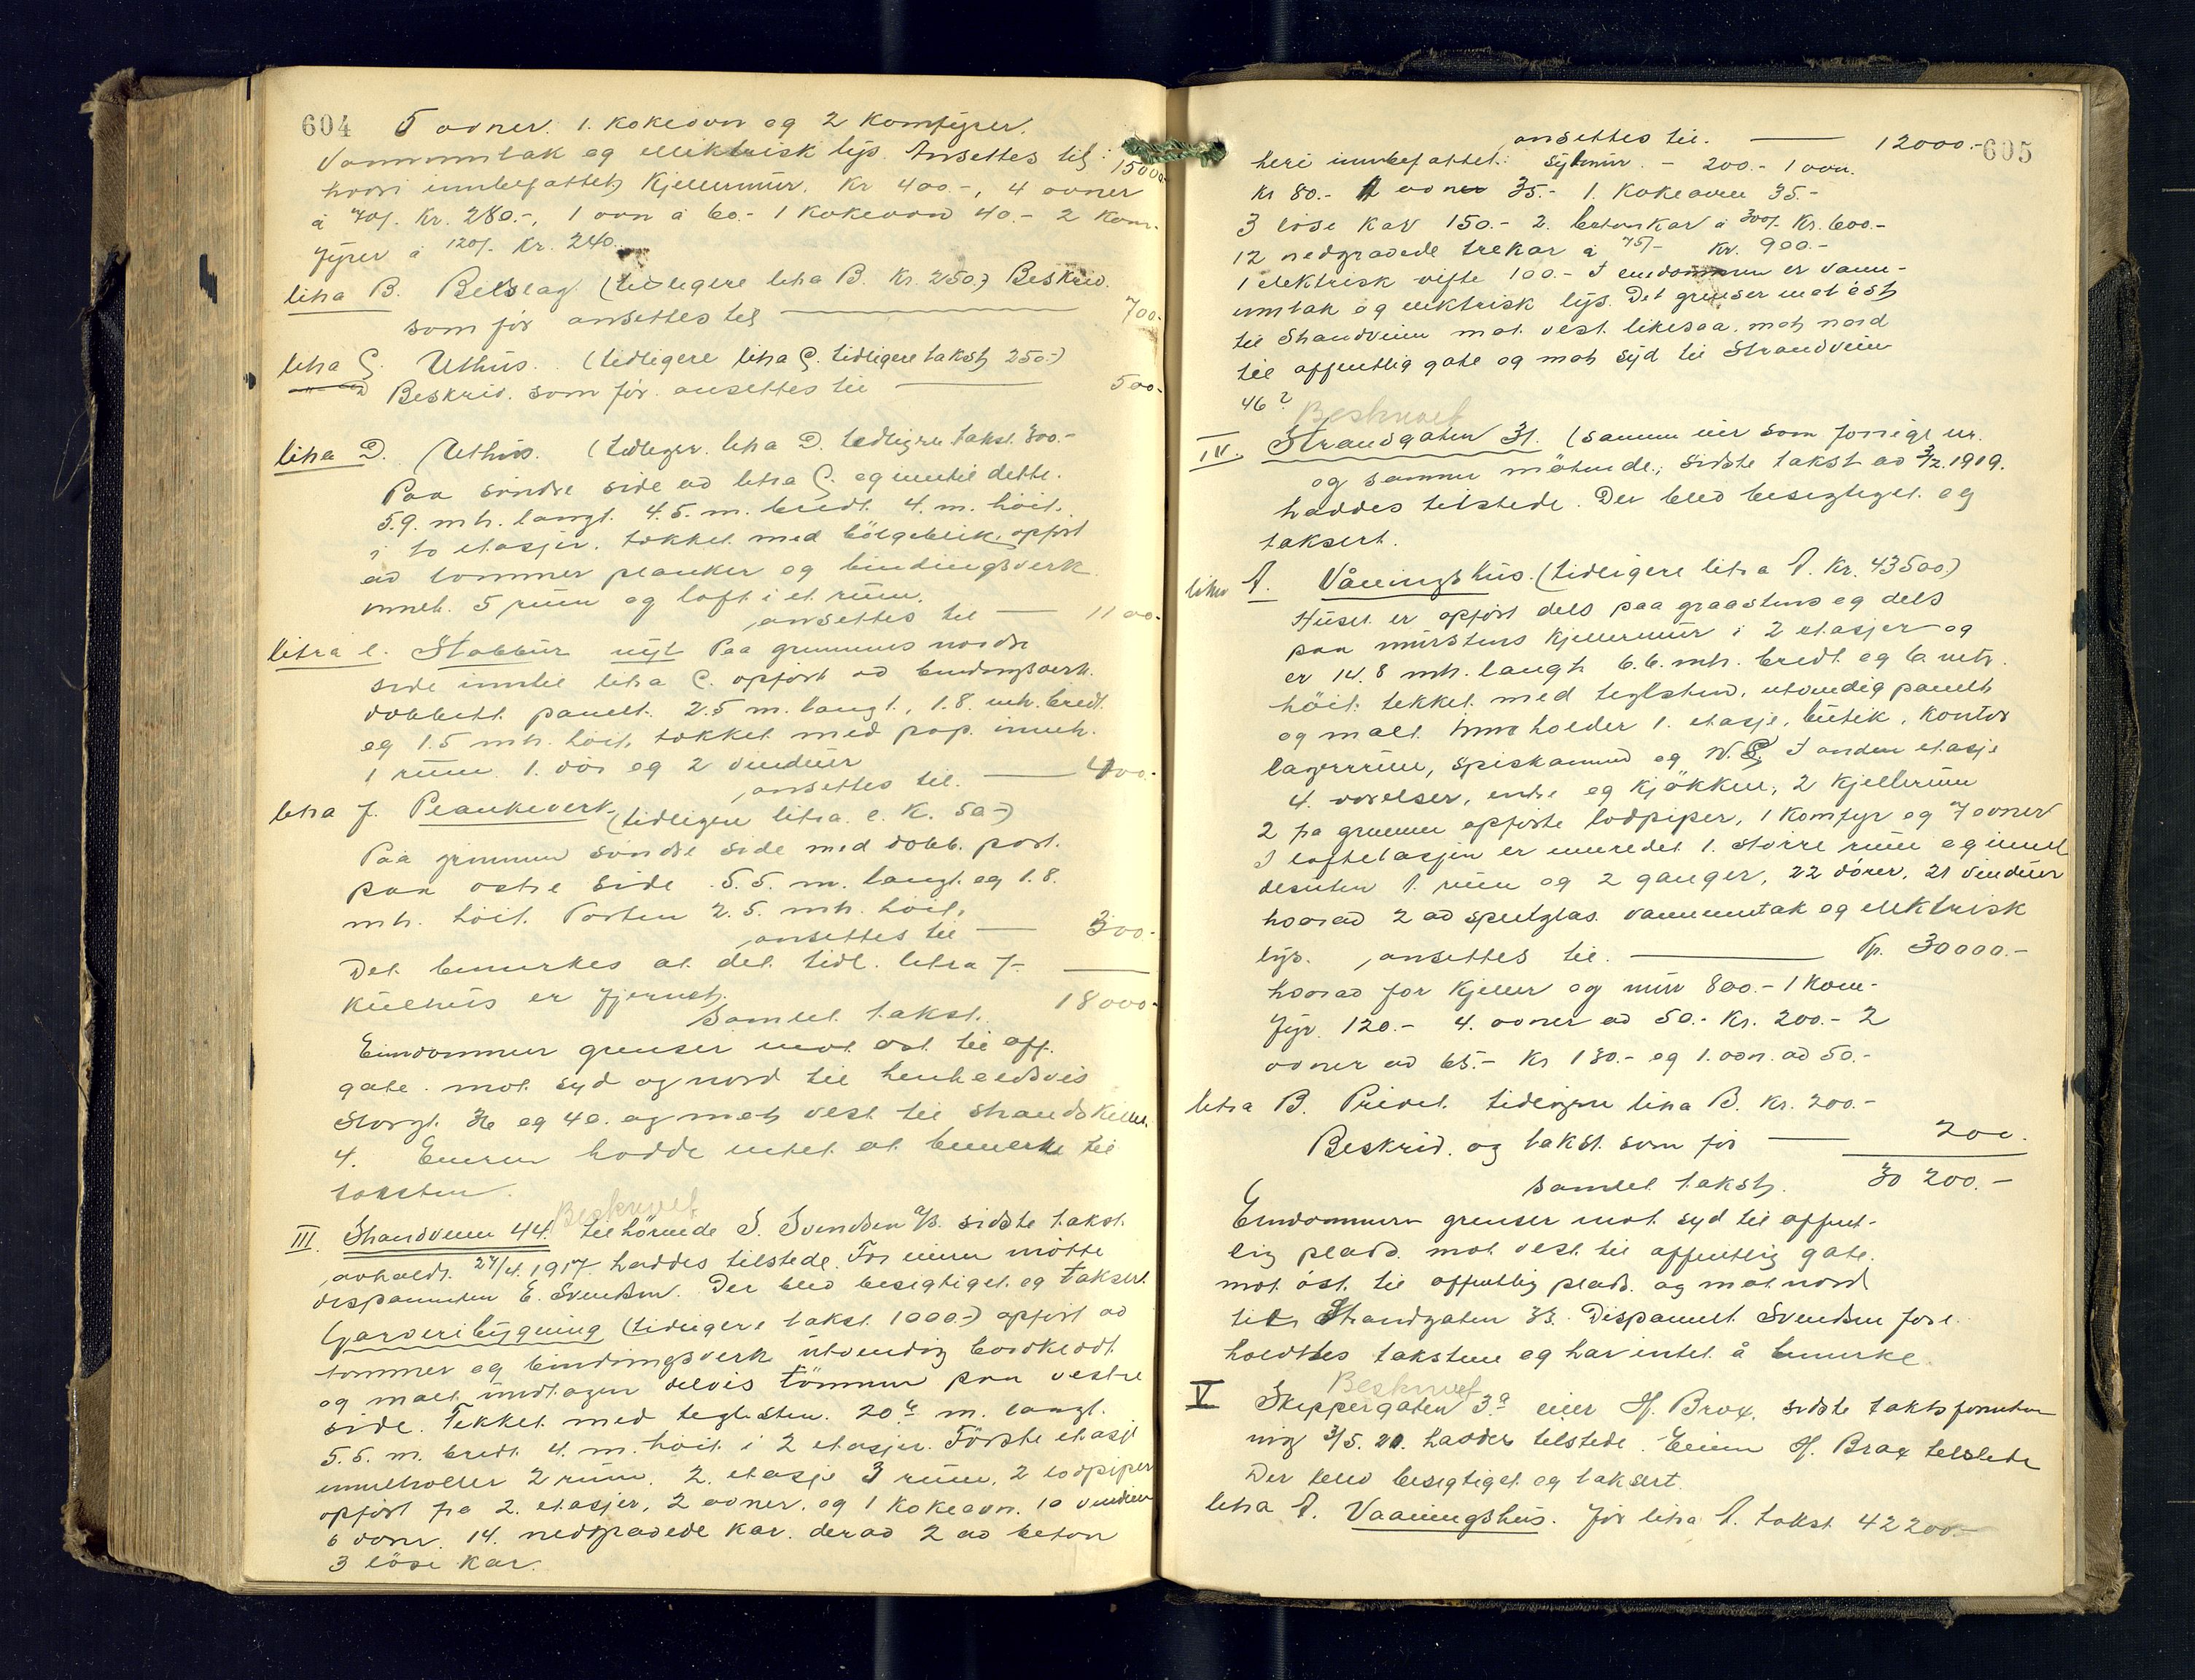 604 5 ovner. 1. kokeovn og 2 komfyrer.
Vanninntak og elektrisk lys. Ansettes til: 15000
hvori innbefattet Kjellermur. Kr 400.-, 4 ovner
à 70/- Kr. 280.-, 1 ovn à 60.- 1 kokeovn 40.- 2 kom-
fyrer à 120/- Kr. 240.-
litra B. Belslag (tidligere litra B. Kr. 250.-) Beskriv.
som før ansettes til 700.-
litra C. Uthus. (tidligere litra C. tidligere takst 250.-)
Beskriv. som før ansettes til 500.-
litra D. Uthus. (tidligere litra D. tidligere takst 300.-
Paa søndre side av litra C. og inntil dette.
5.9. mtr. langt. 4.5. m. bredt. 4. m. høit.
i to etasjer. tekket med bølgeblik, opført
av tømmer planker og bindingsverk
inneh. 5 rum og loft i et rum.
ansettes til 1100.-
litra e. Stabbur nyt Paa grunnens nordre
side inntil litra C. opført av bindingsverk.
dobbelt panelt. 2.5 m. langt, 1.8. mtr. bredt
og 1.5 mtr. høit, tekket med pap. inneh.
1 rum. 1. dør og 2 vinduer
ansettes til. 400.-
litra f. Plankeverk (tidligere litra e. K. 50.-)
Paa grunnens søndre side med dobb. port.
paa østre side 5.5. m. langt og 1.8.
mtr. høit. Porten 2.5. mtr. høit,
ansettes til 300.-
Det bemerkes at det tidl. litra f.
kulhus er fjernet.
Samlet takst. 18000.-
Eiendommen grenser mot øst til off.
gate. mot syd og nord til henholdsvis
Storgt. 36 og 40. og mot vest til Strandskillet
4. Eieren hadde intet at bemerke til
taksten.
Beskrevet
III. Strandveien 44. tilhørende S. Svendsen A/S. sidste takst
avholdt 27/4. 1917. haddes tilstede. For eieren møtte
disponenten E. Svendsen. Der blev besigtiget og taksert.
Garveribygning (tidligere takst 1000.-) opført av
tømmer og bindingsverk utvendig bordkledt
og malt undtagen delvis tømmer paa vestre
side. Tekket med teglsten. 20.6 m. langt.
5.5. m. bredt 4. m. høit i 2 etasjer. Første etasje
inneholder 2 rum. 2. etasje 3 rum, 2 lodpiper
opført fra 2. etasjer, 2 ovner, og 1 kokeovn. 10 vinduer
6 dører. 14. nedgravede kar. derav 2 av beton
3 løse kar.
605
ansettes til. 12000.-
heri innbefattet: Sylmur. - 200.- 1 ovn.
Kr 80.- 1 ovner 35.- 1. kokeovn 35.-
3 løse kar 150.- 2. betonkar à 300/- Kr. 600.-
12 nedgravede trekar à 75/- Kr. 900.-
1 elektrisk vifte 100.- I eiendommen er vann-
inntak og elektrisk lys. Det grenser mot øst
til Strandveien mot vest likesaa. mot nord
til offentlig gate og mot syd til Strandveien
46?
Beskrevet
IV. Strandgaten 31. (samme eier som forrige nr.
og samme møtende.; sidste takst av 3/2. 1919.
haddes tilstede. Der blev besigtiget og
taksert.
litra A. Våningshus. (tidligere litra A. Kr. 43500.)
Huset er opført dels paa graastens og dels
paa murstens Kjellermur i 2 etasjer og
er 14.8 mtr. langt 6.6. mtr. bredt og 6 mtr.
høit: tekket med teglsten, utvendig panelt
og malt. Inneholder 1. etasje, butik, kontor
lagerrum, spiskammer og W.C. I anden etasje
4. værelser, entre og kjøkken, 2 Kjellerrum
2 fra grunnen opførte lodpiper, 1 komfyr og 7 ovner
I loftetasjen er innredet 1. større rum og innet
desuten 1. rum og 2 ganger, 22 dører, 21 vinduer
hvorav 2 av speilglas. vanninntak og elektrisk
lys. ansettes til. Kr. 30000.-
hvorav for Kjeller og mur 800.- 1 kom-
fyr. 120.- 4. ovner ad 50.- Kr. 200.- 2
ovner ad 65.- Kr 130.- og 1. ovn. ad 50.-
litra B. Privet. tidligere litra B. Kr. 200.-
Beskriv. og takst som før 200.
samlet takst. 30 200.-
Eiendommen grenser mot syd til offent-
lig plads. mot vest til offentlig gate.
mot øst til offentlig plads. og mot nord
til Strandgaten 33. Disponent Svendsen fore-
holdtes taksten og har intet å bemerke.
Beskrevet
V Skippergaten 3a eier H. Brox. sidste takstforretn-
ing 3/5. 20. haddes tilstede. Eieren H. Brox tilstede
Der blev besigtiget og taksert.
litra A. Vaaningshus. før litra A. takst 42200.-